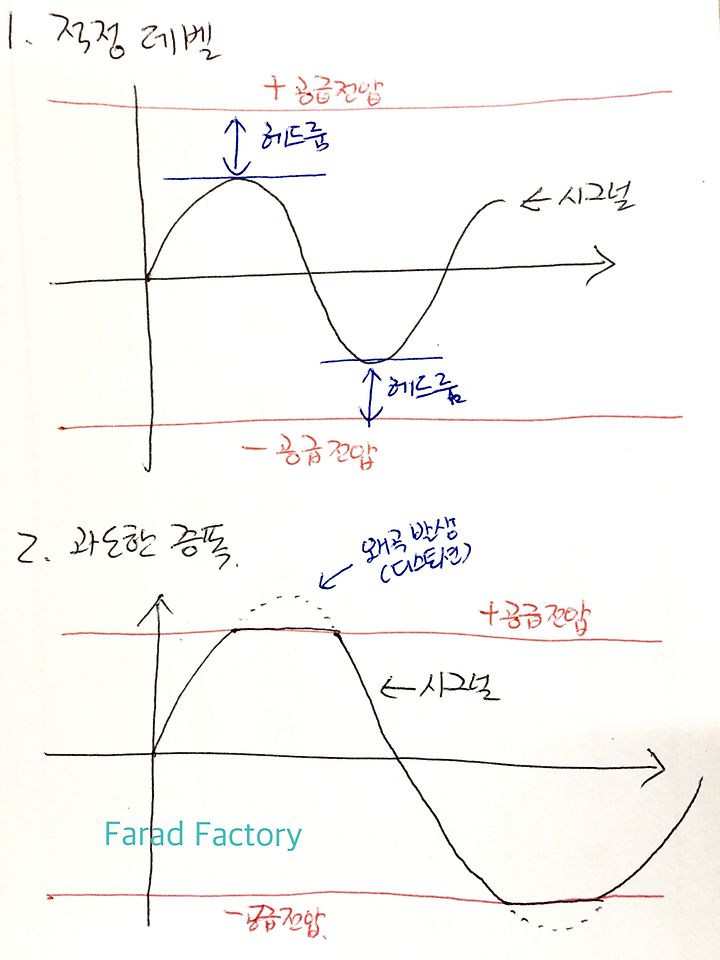 1. 적정 레벨
+ 공급전압
헤드룸
← 시그널
헤드룸
- 공급전압
2. 과도한 증폭.
왜곡 발생
(디스토션)
+공급전압
← 시그널
Farad Factory
-공급전압.